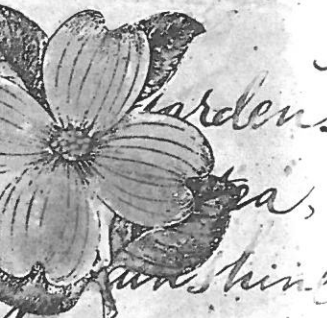 ardens
tea,
unshine